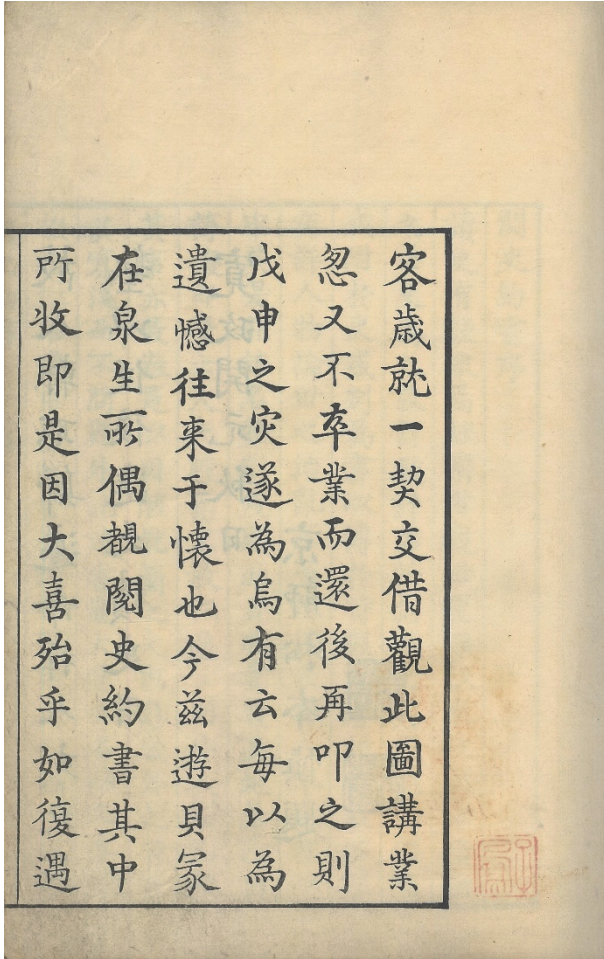 客歳就一契交借觀此圖講業
忽又不卒業而還後再叩之則
戊申之灾遂為烏有云每以為
遺憾往来于懐也今兹遊貝冡
在泉生所偶覩閲史約書其中
所收即是因大喜殆乎如復遇